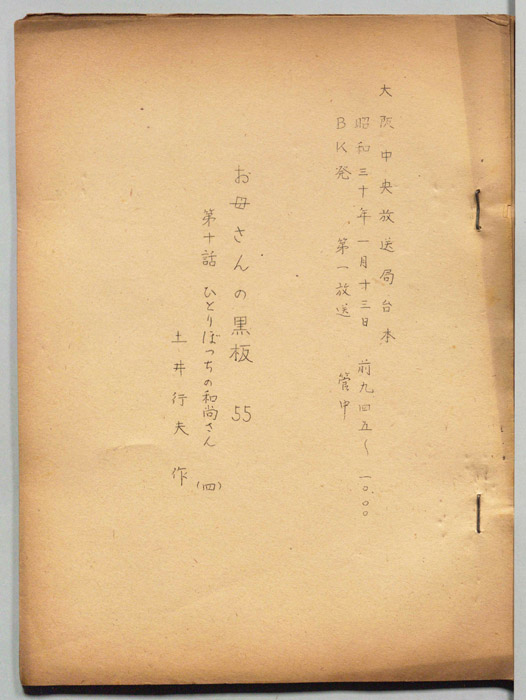 大阪中央放送局台本
昭和三十年一月十三日 前九四五〜一〇.〇〇
BK発 第一放送 管中
お母さんの黒板 55
第十話 ひとりぼっちの和尚さん (四)
土井行夫 作